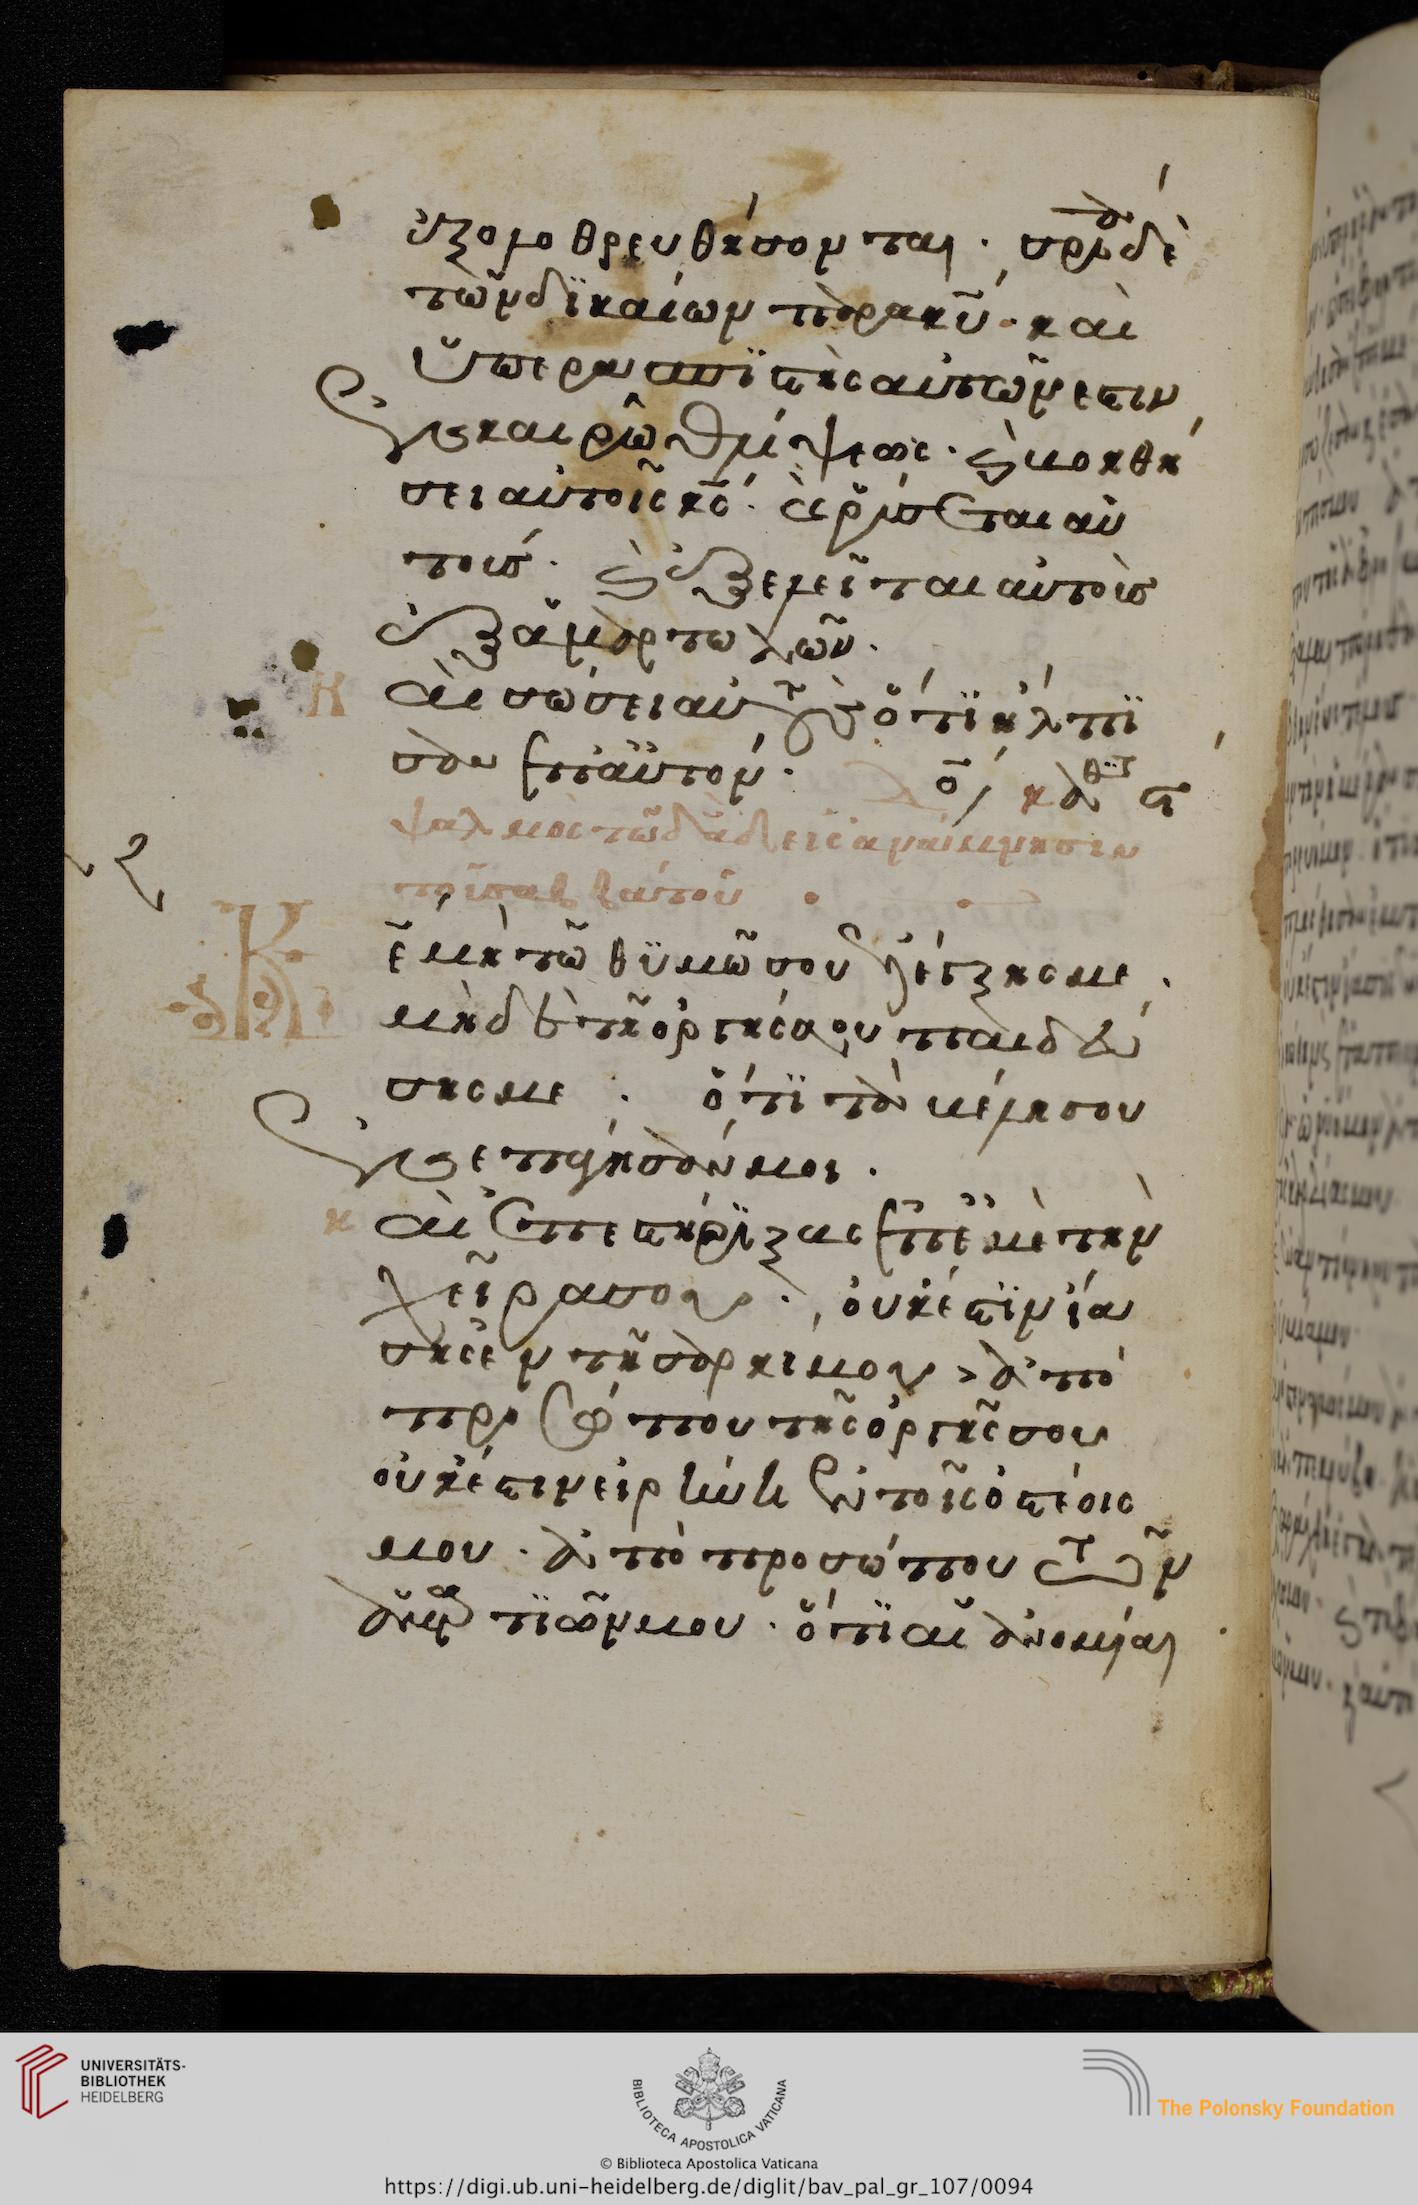 ἐξολοθρευθήσονται· σρΐα δὲ
τῶν δϊκαίων παρα κῦ· καὶ
ὑπερασπϊστὴς αὐτῶν ἐστιν
ἐν καιρῶ θλίψεως· καὶ βοηθή
σει αὐτοῖς κς· καὶ ῥύσεται αὐ
τούς· καὶ ἐξελεῖται αὐτοὺς
ἐξ ἁμαρτωλῶν·
Καὶ σώσει αὐτοὺς ὅτϊ ἤλπϊ
σαν ἐπ αὐτόν·
ψαλμὸς τῶ δαδ εἰς ἀνάμνησιν
Κε μὴ τῶ θϋμῶ σου ἐλέγξης με·
μὴ δὲ τῆ ὀργῆ σου παιδεύ
σης με· ὅτϊ τὰ βέλη σου
ἐνεπάγησάν μοι·
Καὶ ἐπεστήρϊξας ἐπ ἐμὲ τὴν
χεῖρα σου· οὐκ ἔστϊν ἴα
σις ἐν τῆ σαρκί μου, ἀπὸ
προσώπου τῆς ὀργῆς σου
οὐκ ἔστιν εἰρήνη ἐν τοῖς ὀστέοις
μου· ἀπὸ προσώπου τῶν
ἁμαρτϊῶν μου· ὅτϊ αἱ ἀνομίαι
UNIVERSITÄTS-
BIBLIOTHEK
HEIDELBERG
BIBLIOTECA APOSTOLICA VATICANA
The Polonsky Foundation
© Biblioteca Apostolica Vaticana
https://digi.ub.uni-heidelberg.de/diglit/bav_pal_gr_107/0094